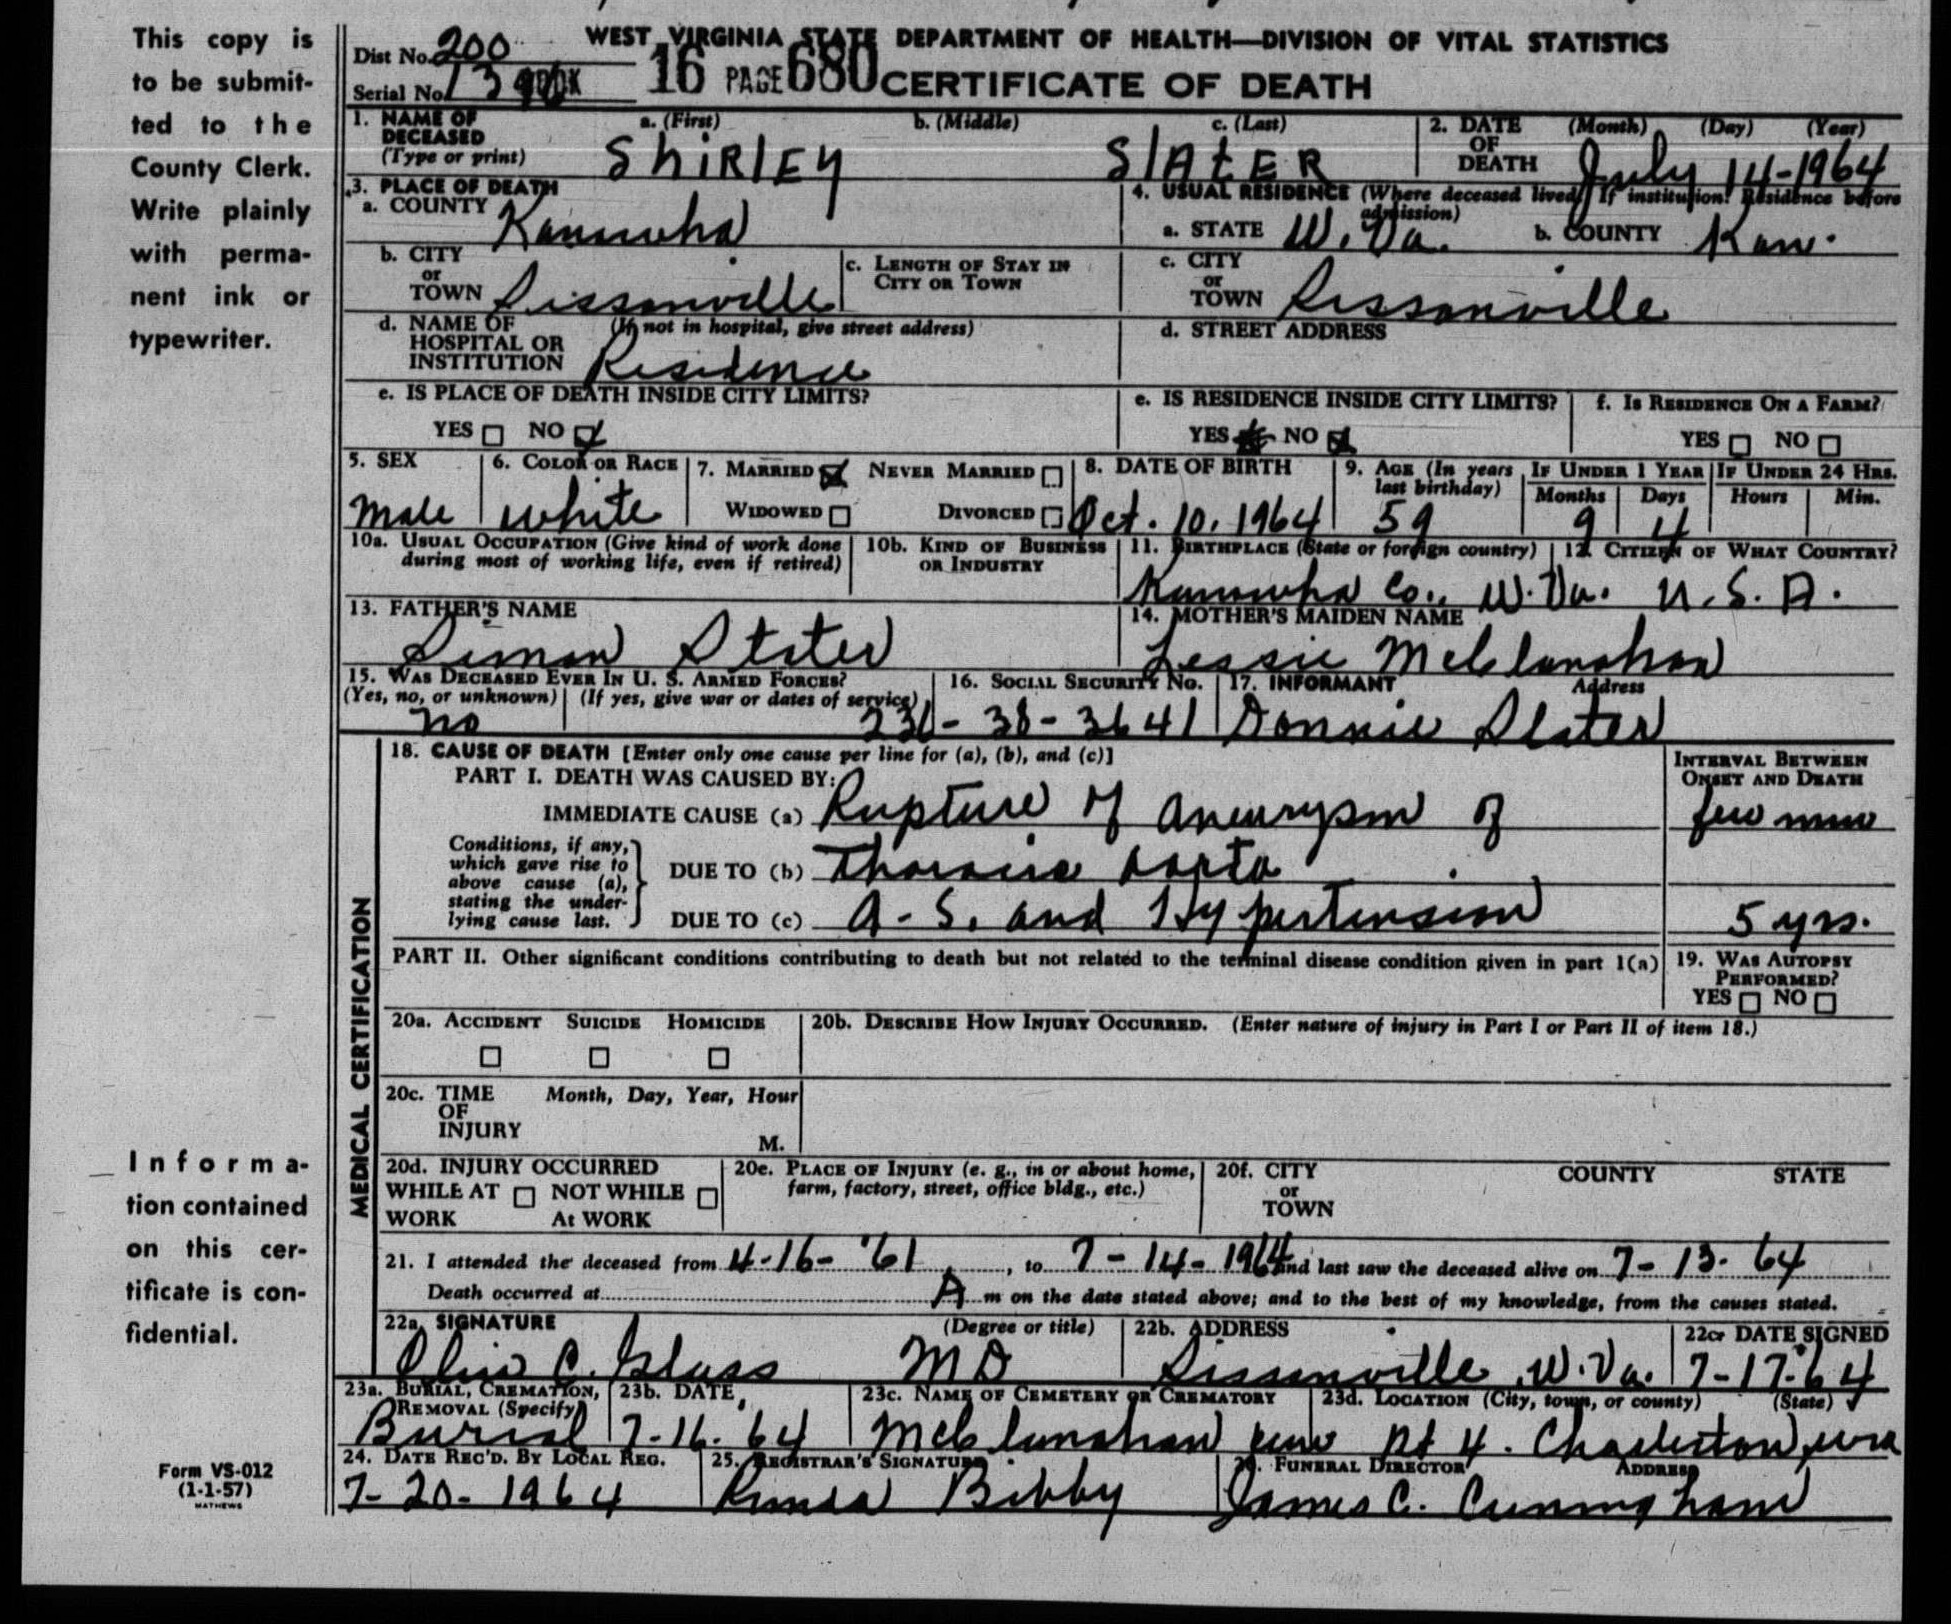 This copy is
to be submit-
ted to the
County Clerk.
Write plainly
with perma-
nent ink or
typewriter.
WEST VIRGINIA STATE DEPARTMENT OF HEALTH—DIVISION OF VITAL STATISTICS
Dist No. 200
16 PAGE 680 CERTIFICATE OF DEATH
Serial No.
1. NAME OF DECEASED (Type or print) a. (First) b. (Middle) c. (Last) 2. DATE OF DEATH (Month) (Day) (Year)
SHIRLEY SLATER July 14-1964
3. PLACE OF DEATH 4. USUAL RESIDENCE (Where deceased lived. If institution: Residence before admission)
a. COUNTY Kanawha a. STATE W. Va. b. COUNTY Kan.
b. CITY or TOWN Sissonville c. LENGTH OF STAY IN CITY OR TOWN c. CITY or TOWN Sissonville
d. NAME OF HOSPITAL OR INSTITUTION (If not in hospital, give street address) Residence d. STREET ADDRESS
e. IS PLACE OF DEATH INSIDE CITY LIMITS? e. IS RESIDENCE INSIDE CITY LIMITS? f. IS RESIDENCE ON A FARM?
YES NO YES NO YES NO
5. SEX 6. COLOR OR RACE 7. MARRIED NEVER MARRIED 8. DATE OF BIRTH 9. AGE (In years last birthday) IF UNDER 1 YEAR IF UNDER 24 HRS.
Months Days Hours Min.
Male white WIDOWED DIVORCED Oct. 10, 1964 59 9 4
10a. USUAL OCCUPATION (Give kind of work done during most of working life, even if retired) 10b. KIND OF BUSINESS OR INDUSTRY 11. BIRTHPLACE (State or foreign country) 12. CITIZEN OF WHAT COUNTRY?
Kanawha Co., W. Va. U. S. A.
13. FATHER'S NAME 14. MOTHER'S MAIDEN NAME
Simon Slater Lessie McClanahan
15. WAS DECEASED EVER IN U. S. ARMED FORCES? 16. SOCIAL SECURITY NO. 17. INFORMANT Address
(Yes, no, or unknown) (If yes, give war or dates of service)
no 236-38-3641 Donnie Slater
MEDICAL CERTIFICATION
18. CAUSE OF DEATH [Enter only one cause per line for (a), (b), and (c)] INTERVAL BETWEEN ONSET AND DEATH
PART I. DEATH WAS CAUSED BY:
IMMEDIATE CAUSE (a) Rupture of aneurysm of few min
Conditions, if any, which gave rise to above cause (a), stating the under-lying cause last.
DUE TO (b) Thoracic aorta
DUE TO (c) A-S. and Hypertension 5 yrs.
PART II. Other significant conditions contributing to death but not related to the terminal disease condition given in part 1(a) 19. WAS AUTOPSY PERFORMED?
YES NO
20a. ACCIDENT SUICIDE HOMICIDE 20b. DESCRIBE HOW INJURY OCCURRED. (Enter nature of injury in Part I or Part II of item 18.)
20c. TIME OF INJURY Month, Day, Year, Hour
M.
20d. INJURY OCCURRED 20e. PLACE OF INJURY (e. g., in or about home, farm, factory, street, office bldg., etc.) 20f. CITY or TOWN COUNTY STATE
WHILE AT WORK NOT WHILE At WORK
21. I attended the deceased from 4-16-'61, to 7-14-1964 and last saw the deceased alive on 7-13-64
Death occurred at A m on the date stated above; and to the best of my knowledge, from the causes stated.
22a. SIGNATURE (Degree or title) 22b. ADDRESS 22c. DATE SIGNED
C. Glass MD Sissonville, W. Va. 7-17-64
23a. BURIAL, CREMATION, REMOVAL (Specify) 23b. DATE 23c. NAME OF CEMETERY OR CREMATORY 23d. LOCATION (City, town, or county) (State)
Burial 7-16-64 McClanahan Rt 4. Charleston
24. DATE REC'D. BY LOCAL REG. 25. REGISTRAR'S SIGNATURE 26. FUNERAL DIRECTOR ADDRESS
7-20-1964 Bibby James C. Cunningham
Informa-
tion contained
on this cer-
tificate is con-
fidential.
Form VS-012
(1-1-57)
MATHEWS